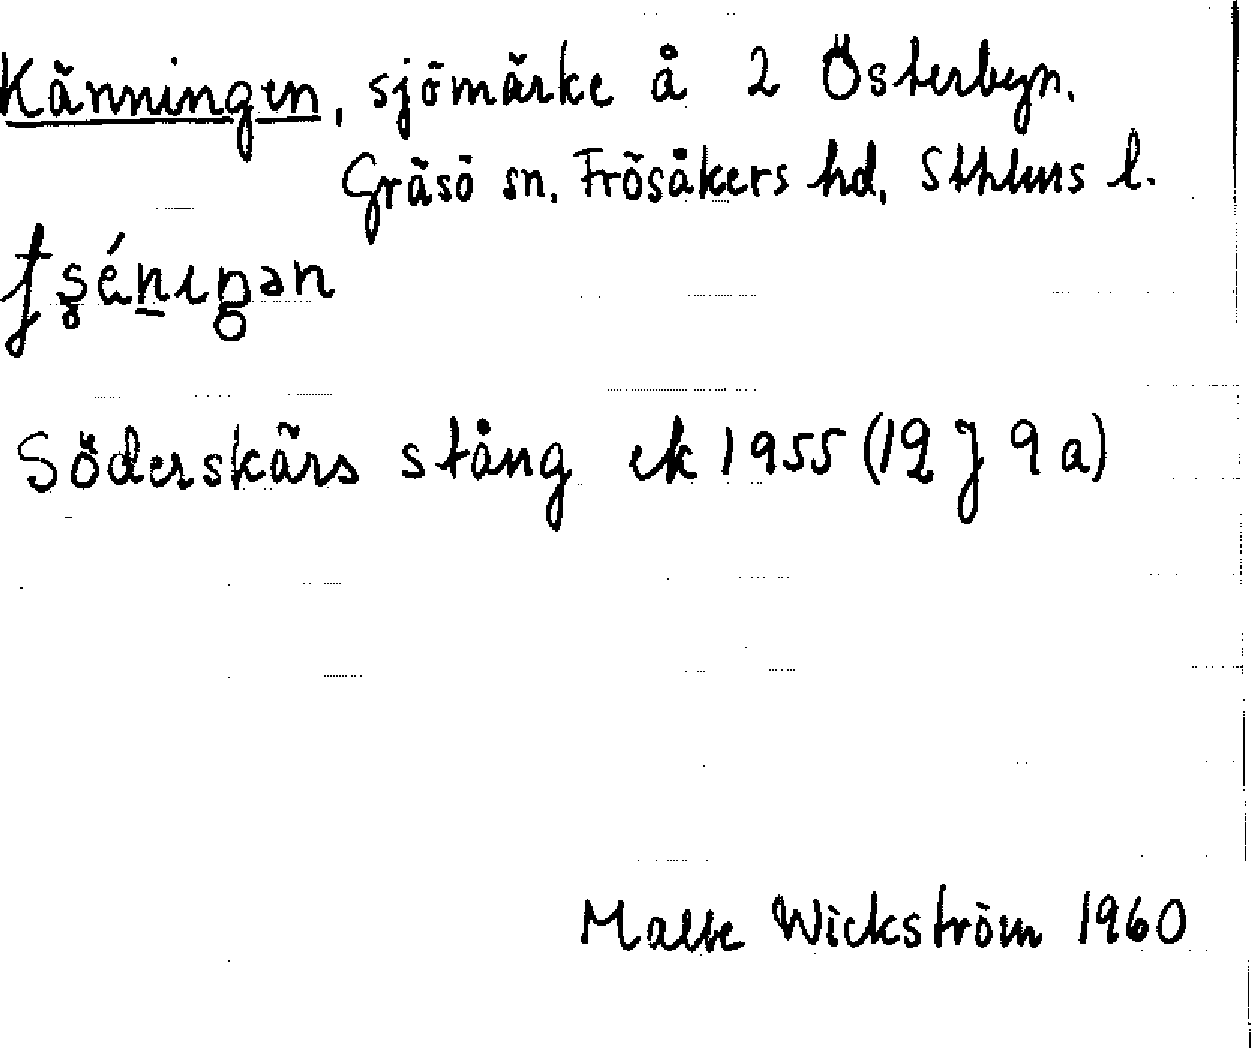 Känningen, sjömärke å 2 Österbyn.
Gräsö sn. Frösåkers hd, Sthlms l.
Söderskärs stång ek 1955 (12 J 9 a)
Wickström 1960